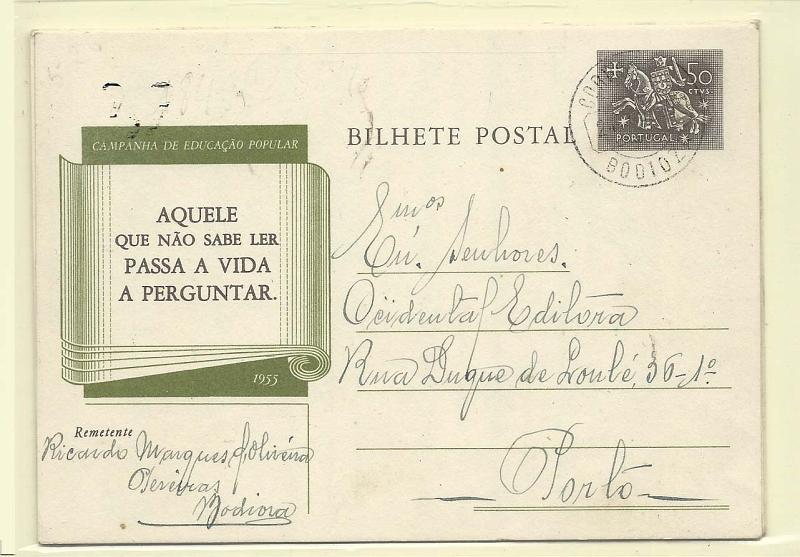 CAMPANHA DE EDUCAÇÃO POPULAR
AQUELE
QUE NÃO SABE LER
PASSA A VIDA
A PERGUNTAR.
1955
BILHETE POSTAL
1$50
CTVS
PORTUGAL
Senhores.
Ocidental Editôra
Rua Duque de Loulé, 36-1º
Porto
Remetente
Ricardo Marques d'Oliveira
Pereiras